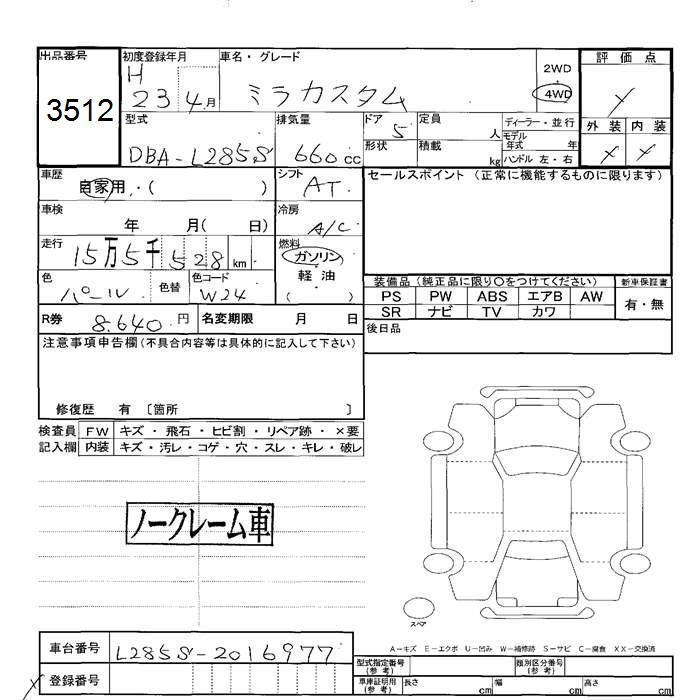 出品番号 初度登録年月 車名・グレード 2WD 評価点
3512 H 23 4月 ミラカスタム 4WD
型式 排気量 ドア 定員 ディーラー・並行 外装 内装
DBA-L285S 660cc 5 人 モデル年式 年
形状 積載 kg ハンドル 左・右
車歴 自家用・( ) シフト AT セールスポイント (正常に機能するものに限ります)
車検 年 月( 日) 冷房 A/C
走行 15万5千528km 燃料 ガソリン
軽油
色 パール 色替 色コード W24 ( )
装備品 (純正品に限り〇をつけてください) 新車保証書
PS PW ABS エアB AW 有・無
SR ナビ TV カワ
R券 8.640円 名変期限 月 日 後日品
注意事項申告欄(不具合内容等は具体的に記入して下さい)
修復歴 有 〔箇所 〕
検査員 FW キズ・飛石・ヒビ割・リペア跡・×要
記入欄 内装 キズ・汚レ・コゲ・穴・スレ・キレ・破レ
ノークレーム車
スペア
A-キズ E-エクボ U-凹み W-補修跡 S-サビ C-腐食 XX-交換済
車台番号 L285S-2016977
登録番号
型式指定番号(参考) 類別区分番号(参考)
車庫証明用(参考) 長さ cm 幅 cm 高さ cm